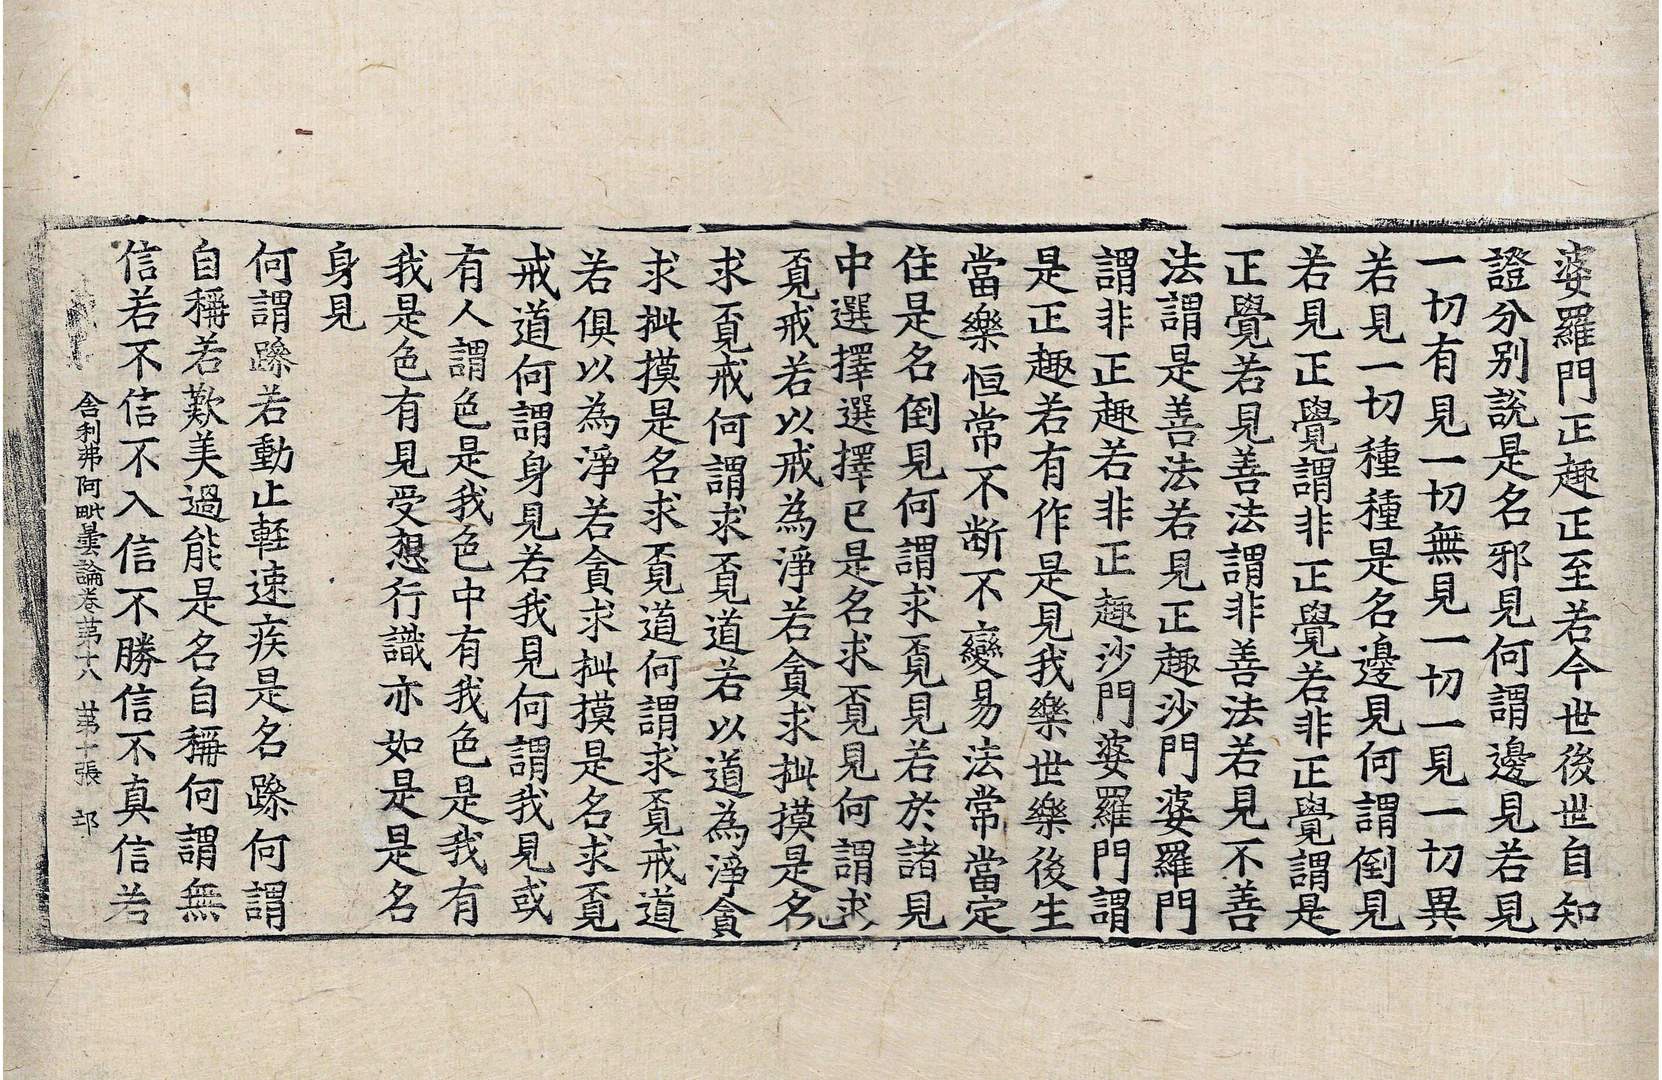 婆羅門正趣正至若今世後世自知
證分別說是名邪見何謂邊見若見
一切有見一切無見一切一見一切異
若見一切種種是名邊見何謂倒見
若見正覺謂非正覺若非正覺謂是
正覺若見善法謂非善法若見不善
法謂是善法若見正趣沙門婆羅門
謂非正趣若非正趣沙門婆羅門謂
是正趣若有作是見我樂世樂後生
當樂恒常不断不變易法常當定
住是名倒見何謂求覔見若於諸見
中選擇選擇已是名求覔見何謂求
覔戒若以戒為淨若貪求㧗摸是名
求覔戒何謂求覔道若以道為淨貪
求㧗摸是名求覔道何謂求覔戒道
若俱以為淨若貪求㧗摸是名求覔
戒道何謂身見若我見何謂我見或
有人謂色是我色中有我色是我有
我是色有見受想行識亦如是是名
身見
何謂躁若動止輊速疾是名躁何謂
自稱若歎美過能是名自稱何謂無
信若不信不入信不勝信不真信若
舍利弗阿毗曇論卷苐十八 苐十張 卭